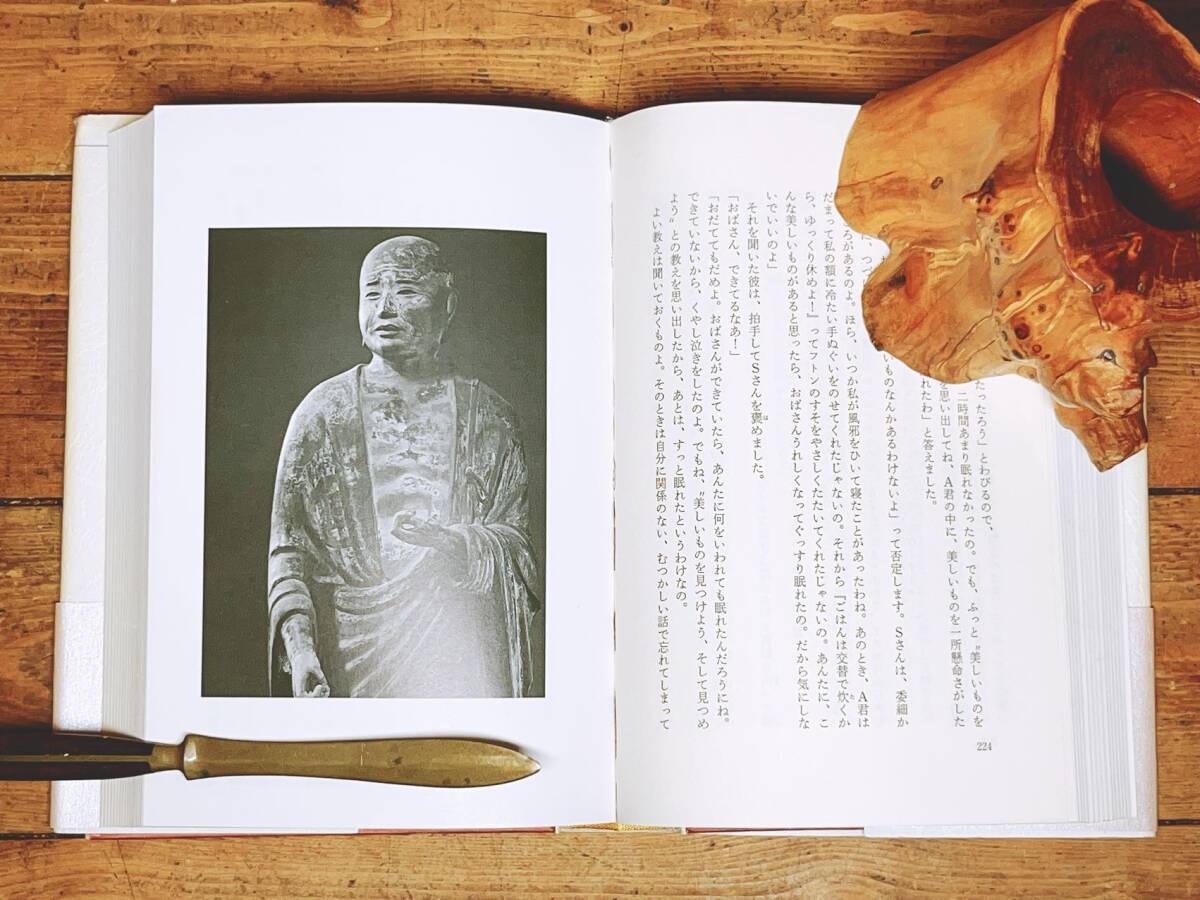 たったろう」とわびるので、
二時間あまり眠れなかったの。でも、ふっと〝美しいものを
を思い出してね、A君の中に、美しいものを一所懸命さがした
れたわ」と答えました。
いものなんかあるわけないよ」って否定します。Sさんは、委細か
ろがあるのよ。ほら、いつか私が風邪をひいて寝たことがあったわね。あのとき、A君は
だまって私の額に冷たい手ぬぐいをのせてくれたじゃないの。それから『ごはんは交替で炊くか
ら、ゆっくり休めよ!』ってフトンのすそをやさしくたたいてくれたじゃないの。あんたに、こ
んな美しいものがあると思ったら、おばさんうれしくなってぐっすり眠れたの。だから気にしな
いでいいのよ」
それを聞いた彼は、拍手してSさんを褒めました。
「おばさん、できてるなあ!」
「おだててもだめよ。おばさんができていたら、あんたに何をいわれても眠れたんだろうにね。
できていないから、くやし泣きをしたのよ。でもね、〝美しいものを見つけよう、そして見つめ
よう〟との教えを思い出したから、あとは、すっと眠れたというわけなの。
よい教えは聞いておくものよ。そのときは自分に関係のない、むつかしい話で忘れてしまって
224